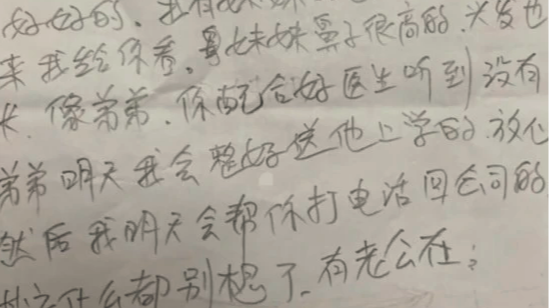 好好的、我有妹妹
来我给你看,妹妹鼻子很高的.头发也
长.像弟弟.你配合好医生听到没有
弟弟明天我会整好送他上学的.放心
然后我明天会帮你打电话回公司的
什么都别想了.有老公在;